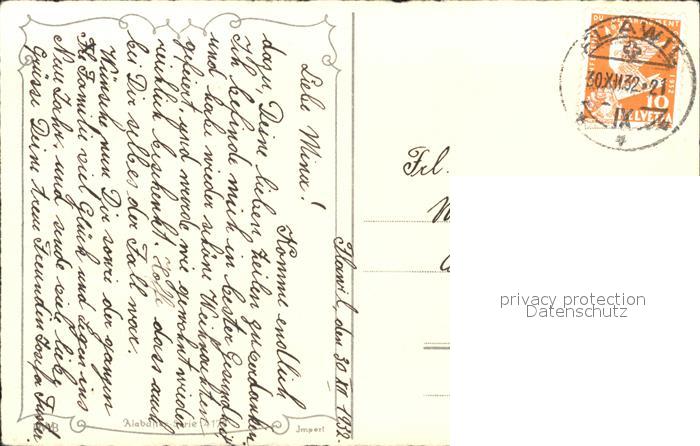 Flawil, den 30. XII. 1932.
Liebe Wina!
Komme endlich
dazu, Deine lieben Zeilen zu verdanken.
Ich befinde mich in bester Gesundheit
und habe wieder schöne Weihnachten
gefeiert und wurde wie gewohnt wieder
reichlich beschenkt. Hoffe dass auch
bei Dir selbes der Fall war.
Wünsche nun Dir sowie der ganzen
Fr. Familie viel Glück und Segen ins
Neue Jahr, und sende viel liebe
Grüsse Deine treue Freundin Josefa
Alabaster Serie
Import
Frl.
FLAWIL
30.XII.32-21
IX
10
HELVETIA
privacy protection
Datenschutz